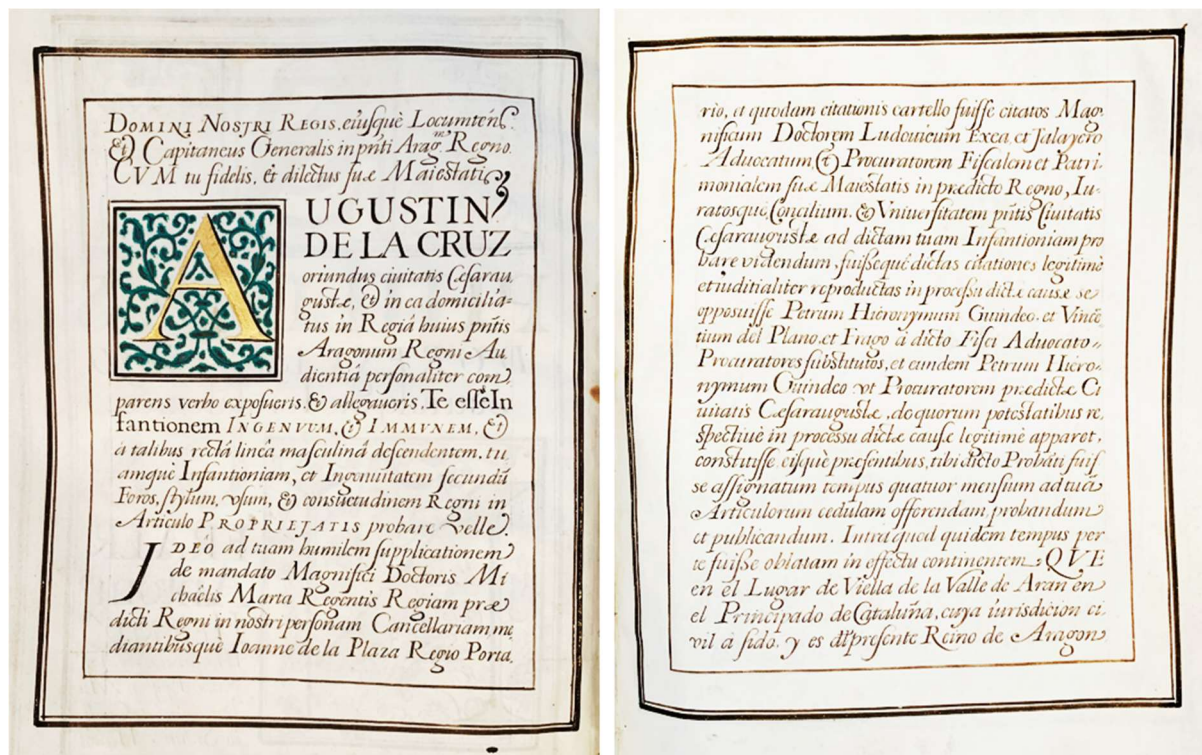 DOMINI NOSTRI REGIS, eiusquè Locumtens.
& Capitaneus Generalis in pnti Aragm. Regno.
CVM tu fidelis, et dilectus suæ Maiestatis
AUGUSTIN
DE LA CRUZ
oriundus ciuitatis Cæsarau
gustæ, & in ea domicilia-
tus in Regiâ huius pntis
Aragonum Regni Au
dientiâ personaliter com
parens verbo exposueris, & allegaueris, Te esse In
fantionem INGENVUM, & IMMVNEM, &
â talibus rectâ lineâ masculinâ descendentem, tu
amquè Infantioniam, et Ingenuitatem secundũ
Foros, stylum, vsum, & consuetudinem Regni in
Articulo PROPRIETATIS probare velle.
IDEO ad tuam humilem supplicationem
de mandato Magnifici Doctoris Mi
chaêlis Marta Regentis Regiam præ
dicti Regni in nostri personam Cancellariam me
diantibusque Ioanne de la Plaza Regio Porta,
rio, et quodam citationis cartello fuisse citatos Mag-
nificum Doctorem Ludouicum Exea, et Talayero
Aduocatum & Procuratorem Fiscalem et Patri-
monialem suæ Maiestatis in prædicto Regno, Iu-
ratosque, Concilium, & Vniuersitatem pntis Ciuitatis
Cæsaraugustæ ad dictam tuam Infantioniam pro
bare videndum, fuissequè dictas citationes legitimè
et iuditialiter reproductas in processu dictæ causæ se
opposuisse Petrum Hieronymum Guindeo, et Vincẽ
tium del Plano, et Frago â dicto Fisci Aduocato-
Procuratores substitutos, et eundem Petrum Hiero-
nymum Guindeo vt Procuratorem prædictæ Ci
uitatis Cæsaraugustæ, de quorum potestatibus re
spectiuè in processu dictæ causæ legitimè apparet,
constitisse, eisquè præsentibus, tibi dicto Probãti fuis
se assignatum tempus quatuor mensium ad tuã
Articulorum cedulam offerendam, probandum
et publicandum. Intra quod quidem tempus per
te fuisse oblatam in effectu continentem, QVE
en el Lugar de Viella de la Valle de Aran en
el Principado de Cataluña, cuya iurisdicion ci
vil â sido, y es del presente Reino de Aragon